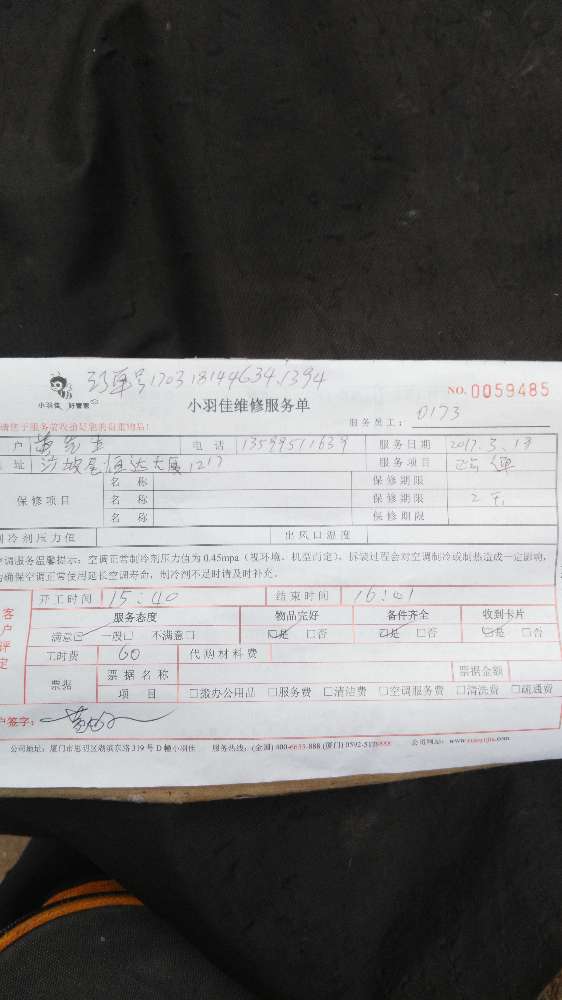 单号1703181446341394
小羽佳 好管家
小羽佳维修服务单
NO. 0059485
服务员工: 0173
户 电话 13599511639 服务日期 2017.3.19
址 沙坡尾恒达大厦1217 服务项目
保修项目 名称 保修期限
名称 保修期限
名称 保修期限
制冷剂压力值 出风口温度
空调服务温馨提示:空调正常制冷剂压力值为0.45mpa(视环境、机型而定),拆装过程会对空调制冷或制热造成一定影响,
确保空调正常使用延长空调寿命,制冷剂不足时请及时补充。
开工时间 15:40 结束时间 16:01
客户评定
服务态度 物品完好 备件齐全 收到卡片
满意☑ 一般□ 不满意□ ☑是 □否 ☑是 □否 ☑是 □否
工时费 60 代购材料费
票据 票据名称 票据金额
项目 □拨办公用品 □服务费 □清洁费 □空调服务费 □清洗费 □疏通费
户签字:
公司地址:厦门市思明区湖滨东路319号D幢小羽佳 服务热线:(全国)400-6633-888 (厦门)0592-5128888 公司网站:www.xiaoyujia.com